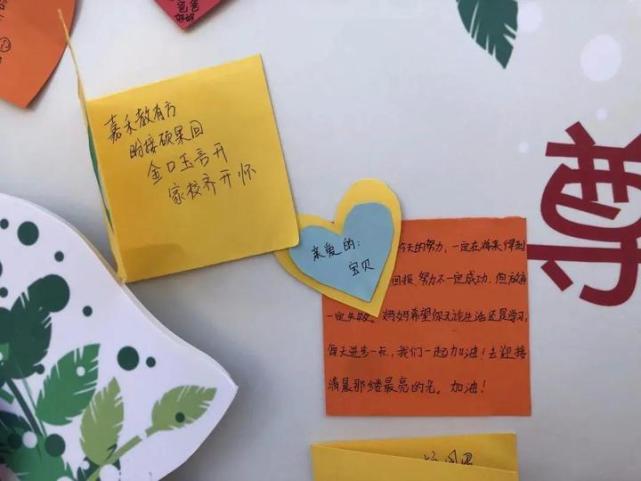 嘉禾教有方
盼接硕果回
金口玉言开
家校齐开怀
亲爱的:
宝贝
今天的努力,一定在将来得到
回报,努力不一定成功,但放弃
一定失败。妈妈希望你无论生活还是学习,
每天进步一点,我们一起加油!去迎接
清晨那缕最亮的光。加油!
尊